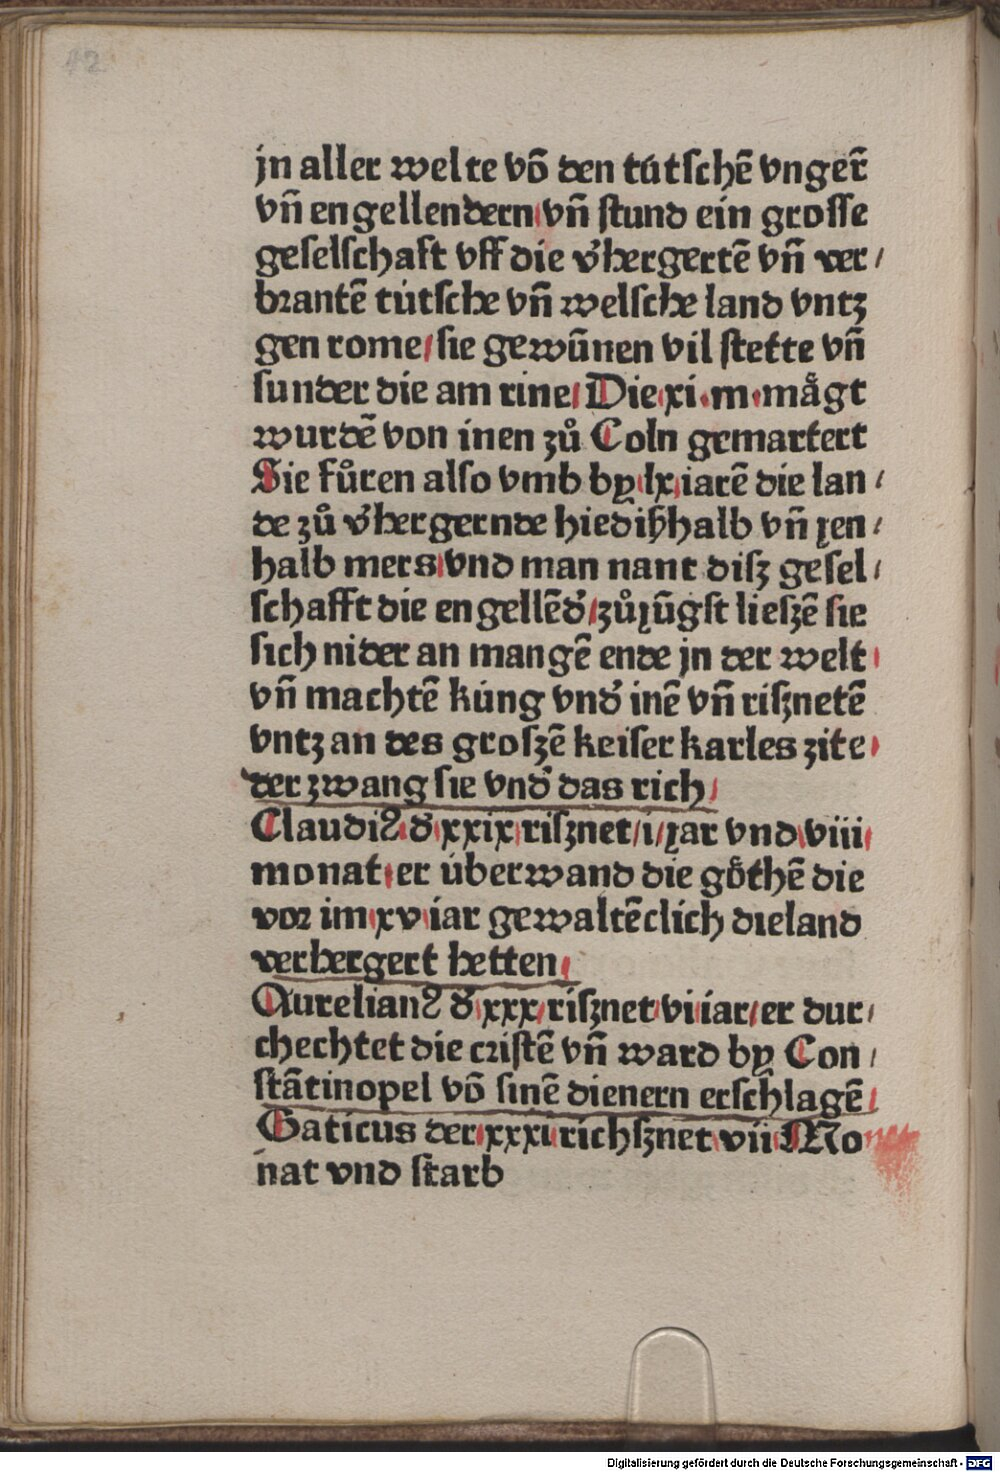 42
jn aller welte võ den tútschẽ vnger̃
vñ engellendern vñ stund ein grosse
geselschaft vff die v᷒hergertẽ vñ ver/
brantẽ tútsche vñ welsche land vntz
gen rome/sie gewũnen vil stette vñ
sunder die am rine/Die xi·m·mågt
wurdẽ von inen zů Coln gemartert
Sie fůren also vmb by lx iarẽ die lan/
de zů v᷒hergernde hiedißhalb vñ ȷen/
halb mers vnd man nant disz gesel/
schafft die engellẽd᷒/zůȷũgst lieszẽ sie
sich nider an mangẽ ende jn der welt
vñ machtẽ kúng vnd᷒ inẽ vñ risznetẽ
vntz an des groszẽ keiser karles zite
der zwang sie vnd᷒ das rich/
Claudiꝰ d᷒ xxix risznet/i/ȷar vnd viii
monat er úberwand die gőthẽ die
vor im xv iar gewaltẽclich dieland
verhergert hetten/
Aurelianꝰ d᷒ xxx/risznet vi iar/er dur/
chechtet die cristẽ vñ ward by Con/
stãtinopel võ sinẽ dienern erschlagẽ/
Gaticus der xxxi richsznet vii Mo
nat vnd starb
Digitalisierung gefördert durch die Deutsche Forschungsgemeinschaft - DFG